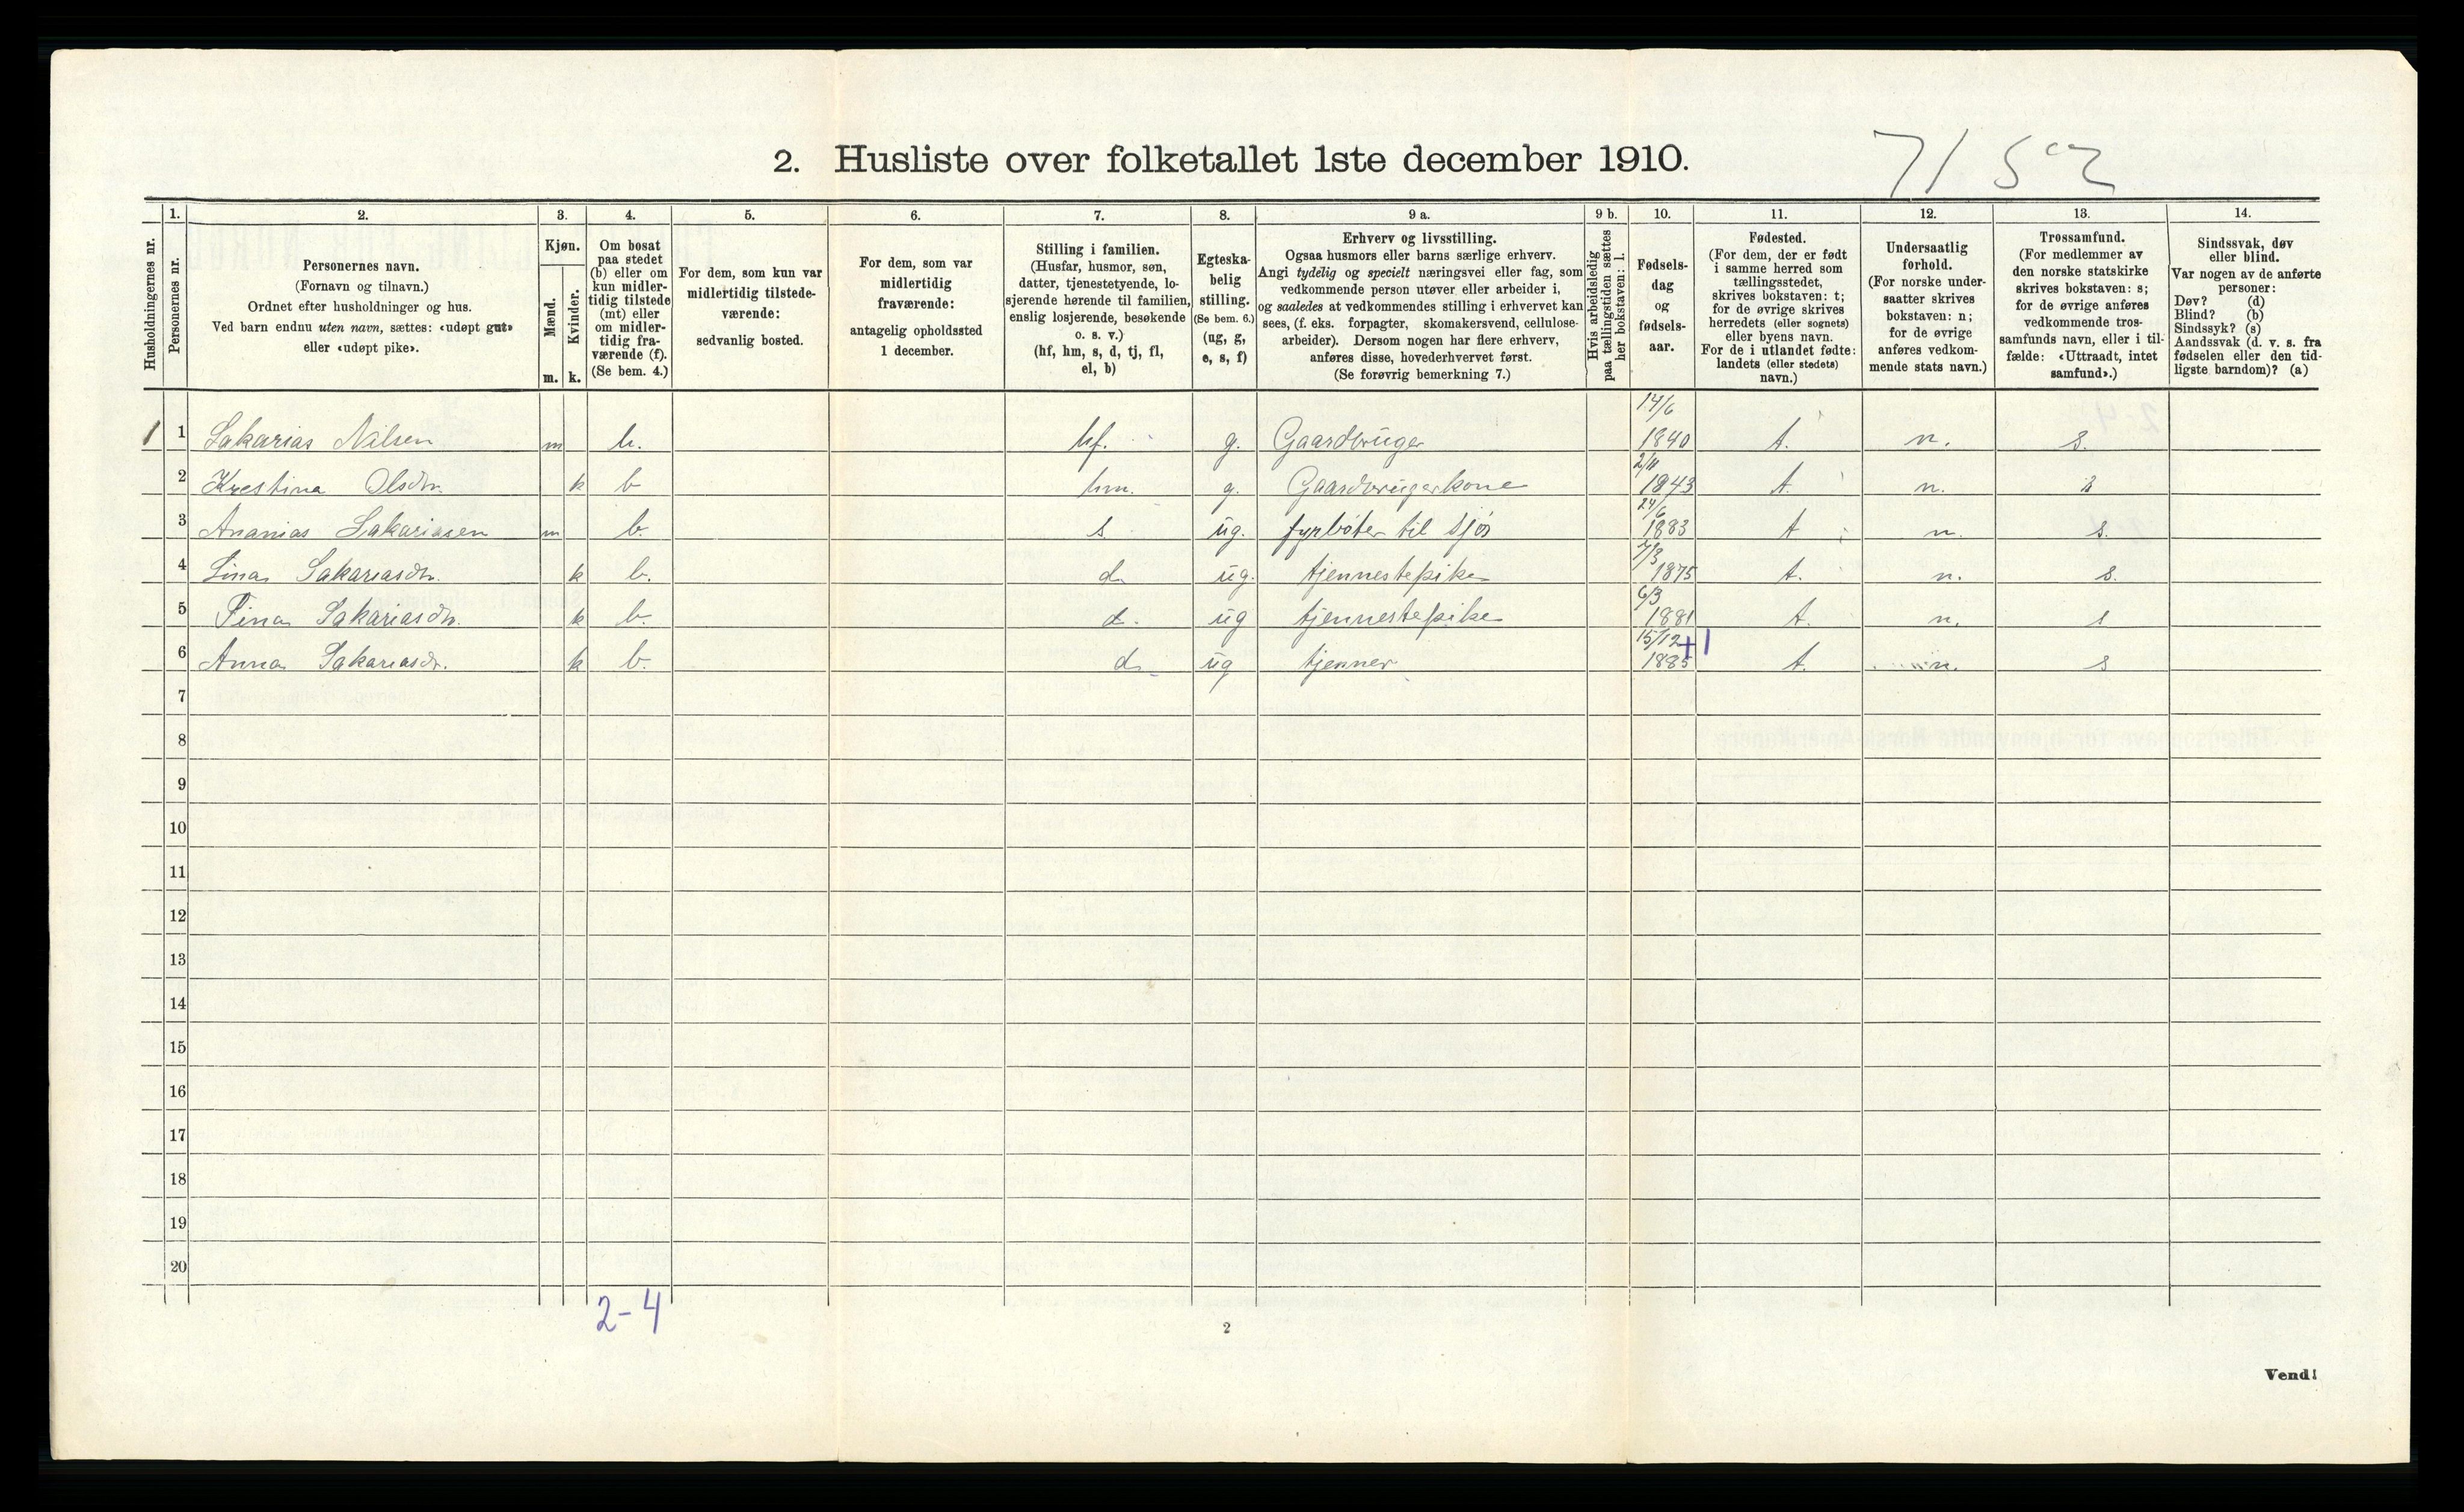 2. Husliste over folketallet 1ste december 1910.
Husholdningernes nr.
1.
Personernes nr.
2.
Personernes navn.
(Fornavn og tilnavn.)
Ordnet efter husholdninger og hus.
Ved barn endnu uten navn, sættes: «udøpt gut»
eller «udøpt pike».
3.
Kjøn.
Mænd.
Kvinder.
m. k.
4.
Om bosat
paa stedet
(b) eller om
kun midler-
tidig tilstede
(mt) eller
om midler-
tidig fra-
værende (f).
(Se bem. 4.)
5.
For dem, som kun var
midlertidig tilstede-
værende:
sedvanlig bosted.
6.
For dem, som var
midlertidig
fraværende:
antagelig opholdssted
1 december.
7.
Stilling i familien.
(Husfar, husmor, søn,
datter, tjenestetyende, lo-
sjerende hørende til familien,
enslig losjerende, besøkende
o. s. v.)
(hf, hm, s, d, tj, fl,
el, b)
8.
Egteska-
belig
stilling.
(Se bem. 6.)
(ug, g,
e, s, f)
9 a.
Erhverv og livsstilling.
Ogsaa husmors eller barns særlige erhverv.
Angi tydelig og specielt næringsvei eller fag, som
vedkommende person utøver eller arbeider i,
og saaledes at vedkommendes stilling i erhvervet kan
sees, (f. eks. forpagter, skomakersvend, cellulose-
arbeider). Dersom nogen har flere erhverv,
anføres disse, hovederhvervet først.
(Se forøvrig bemerkning 7.)
9 b.
Hvis arbeidsledig
paa tællingstiden sættes
her bokstaven: l.
10.
Fødsels-
dag
og
fødsels-
aar.
11.
Fødested.
(For dem, der er født
i samme herred som
tællingsstedet,
skrives bokstaven: t;
for de øvrige skrives
herredets (eller sognets)
eller byens navn.
For de i utlandet fødte:
landets (eller stedets)
navn.)
12.
Undersaatlig
forhold.
(For norske under-
saatter skrives
bokstaven: n;
for de øvrige
anføres vedkom-
mende stats navn.)
13.
Trossamfund.
(For medlemmer av
den norske statskirke
skrives bokstaven: s;
for de øvrige anføres
vedkommende tros-
samfunds navn, eller i til-
fælde: «Uttraadt, intet
samfund».)
14.
Sindssvak, døv
eller blind.
Var nogen av de anførte
personer:
Døv? (d)
Blind? (b)
Sindssyk? (s)
Aandssvak (d. v. s. fra
fødselen eller den tid-
ligste barndom)? (a)
1 1 Sakarias Nilsen m b. hf. g. Gaardbruger 14/6 1840 t. n. s.
2 Krestina Olsdtr. k b hm. g. Gaardbrugerkone 2/11 1843 t. n. s
3 Ananias Sakariasen m b. s. ug. fyrbøter til sjøs 24/6 1883 t n. s.
4 Lina Sakariasdtr. k b. d. ug. tjennestepike 7/3 1875 t. n. s.
5 Tina Sakariasdtr. k b. d. ug tjennestepike 6/3 1881 t. n. s
6 Anna Sakariasdtr. k b. d. ug tjenner 15/12 1885 +1 t. n. s
7
8
9
10
11
12
13
14
15
16
17
18
19
20
2-4
2
Vend!